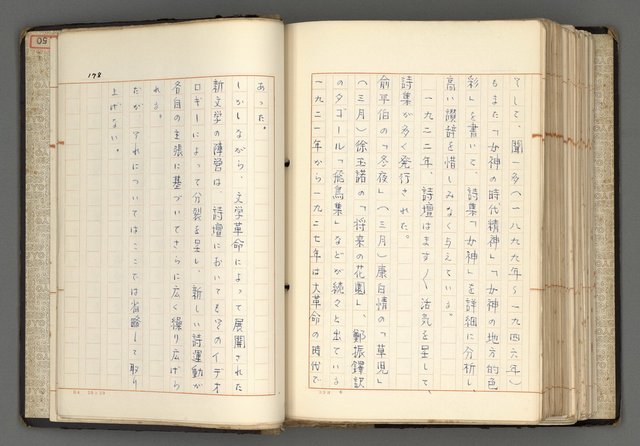 そして、聞一多(一八九九年〜一九四六年)
もまた「女神の時代精神」「女神の地方的色
彩」を書いて、詩集「女神」を詳細に分析し、
高い讃辞を惜しみなく与えている。
一九二二年、詩壇はます〳〵活気を呈して、
詩集が多く発行された。
兪平伯の「冬夜」(三月)康白情の「草児」
(三月)徐玉諾の「将来の花園」、鄭振鐸訳
のタゴール「飛鳥集」などが続々と出ている
一九二一年から一九二七年は大革命の時代で
178
あった。
しかしながら、文学革命によって展開された
新文学の陣営は、詩壇においてもそのイデオ
ロギーによって分裂を呈し、新しい詩運動が
各自の主張に基づいてさらに広く繰り広げら
れる。
だが、それについてはここでは省略して取り
上げない。